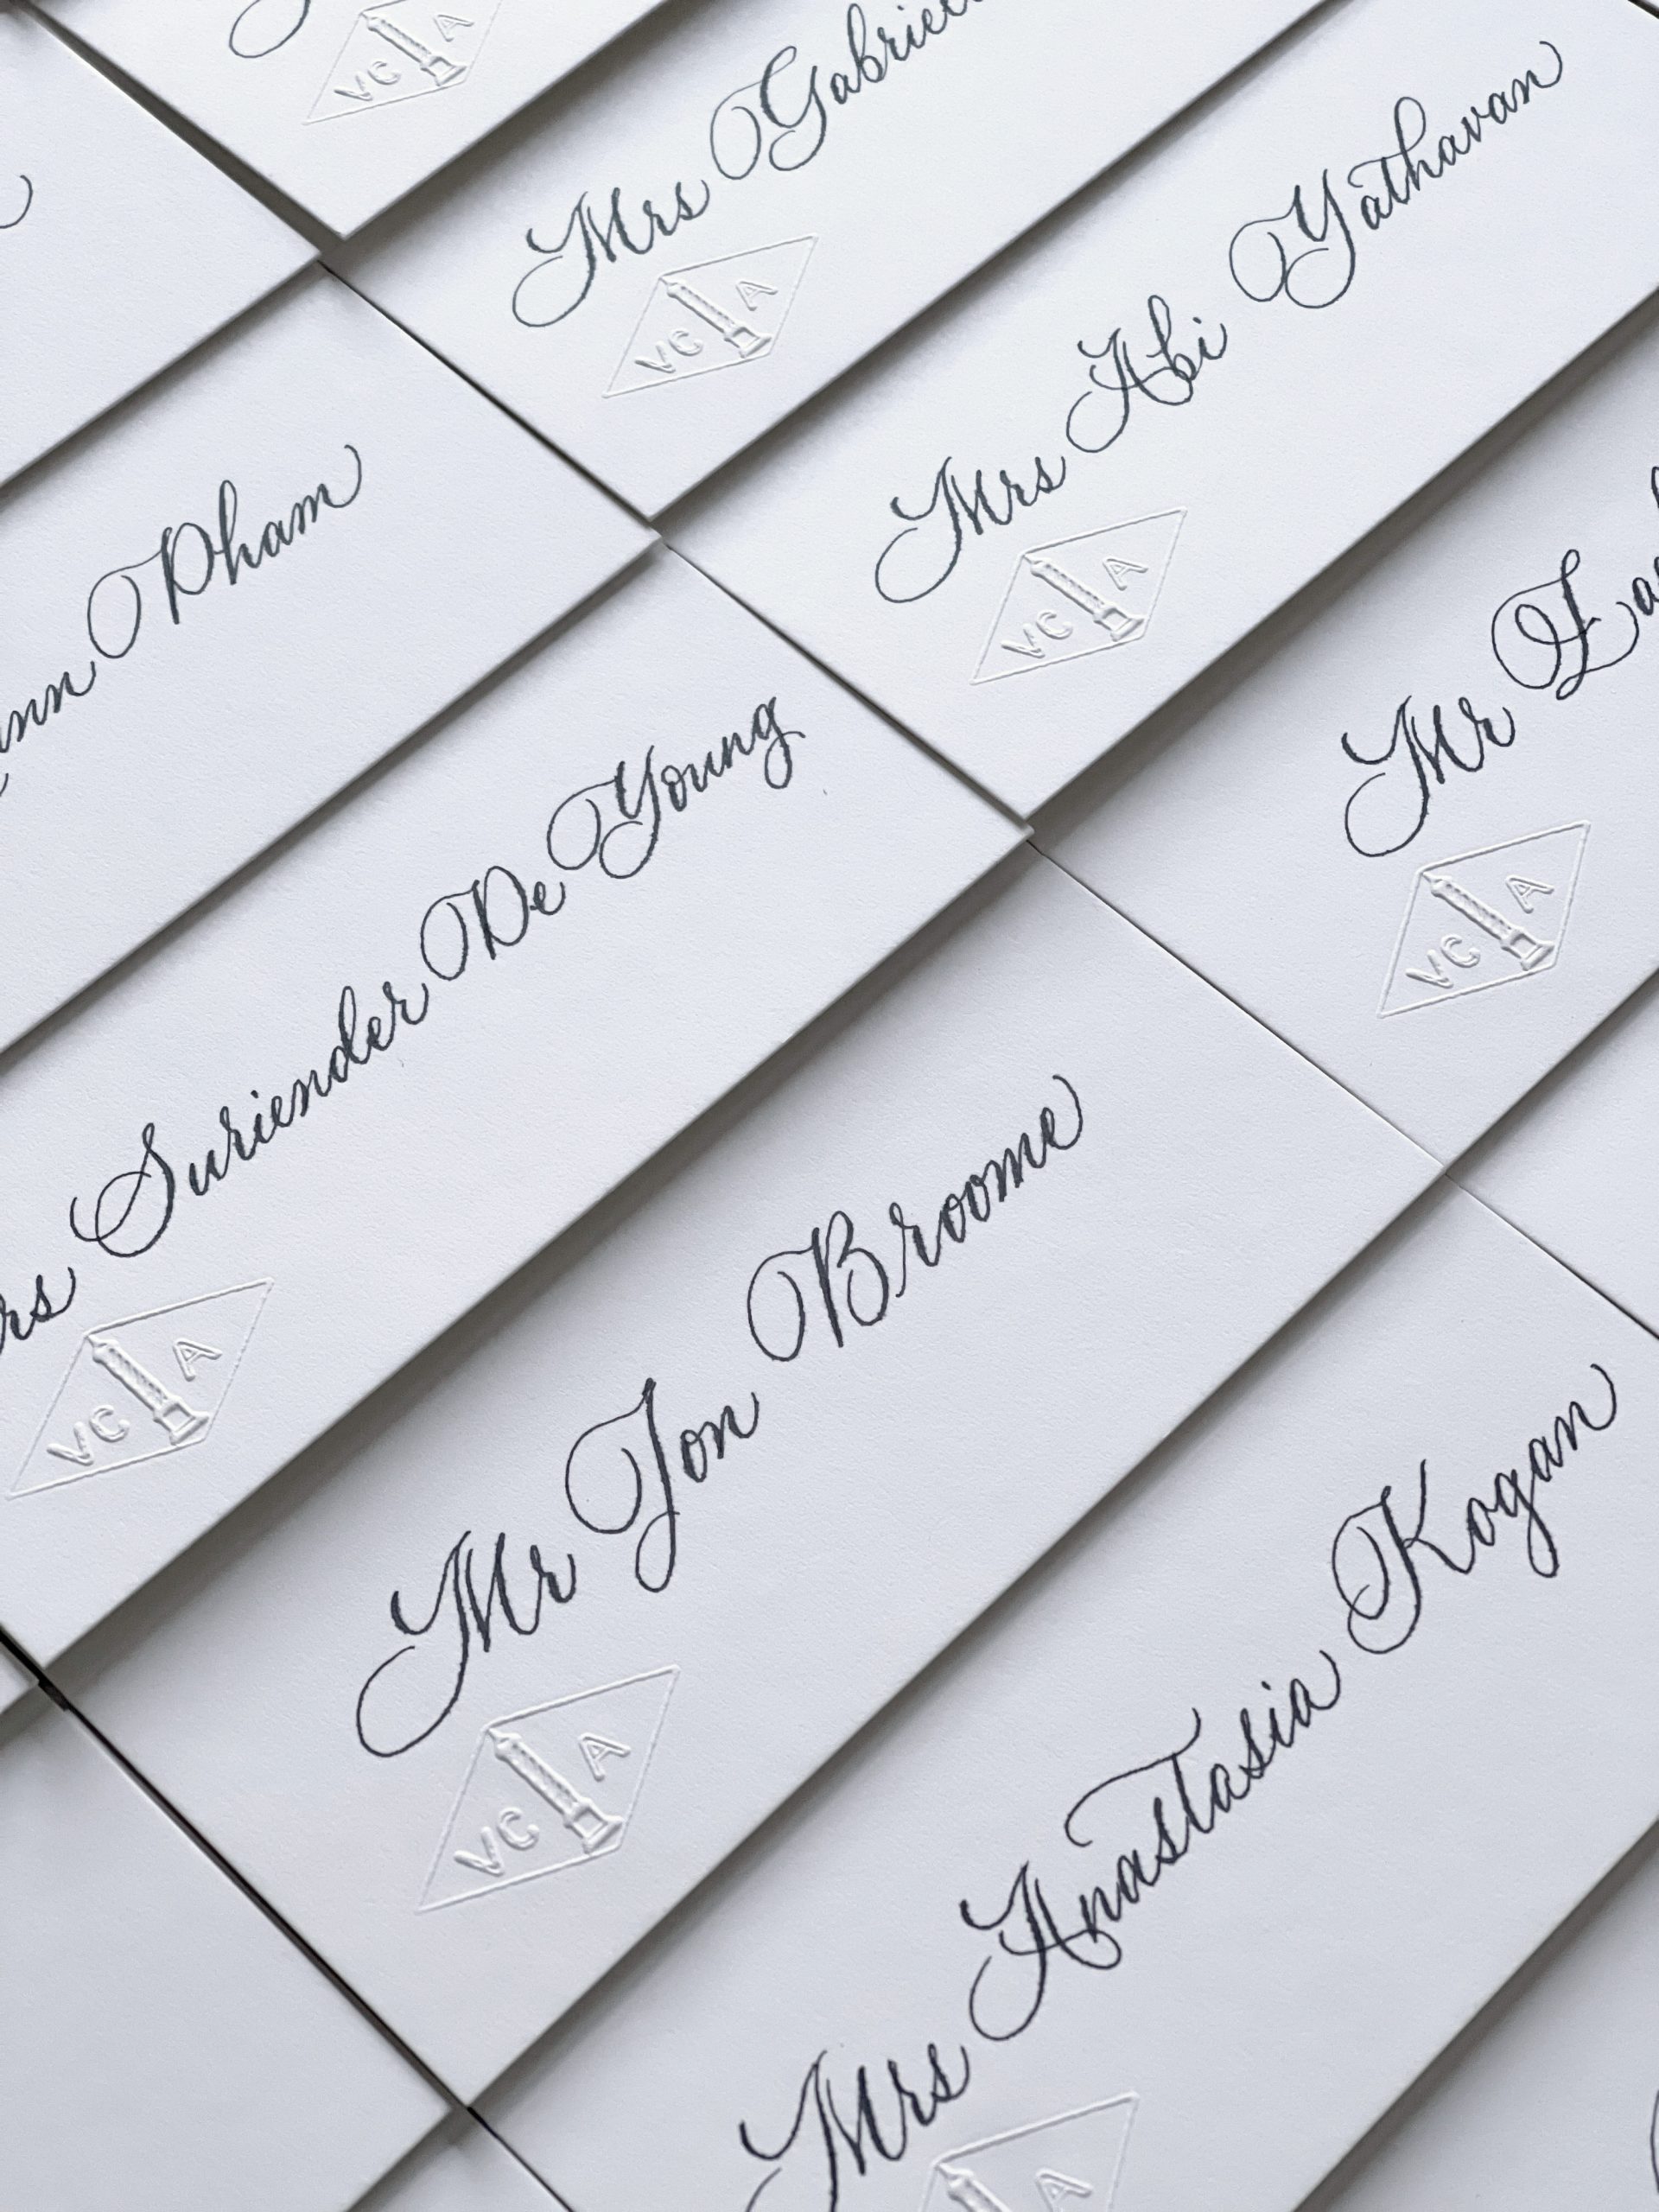 VC A
Mrs
VC A
Mrs Abi Yathavan
VC A
Pham
Mr
VC A
Suriender De Young
VC A
Mr Jon Broome
VC A
Mrs Anastasia Kogan
A